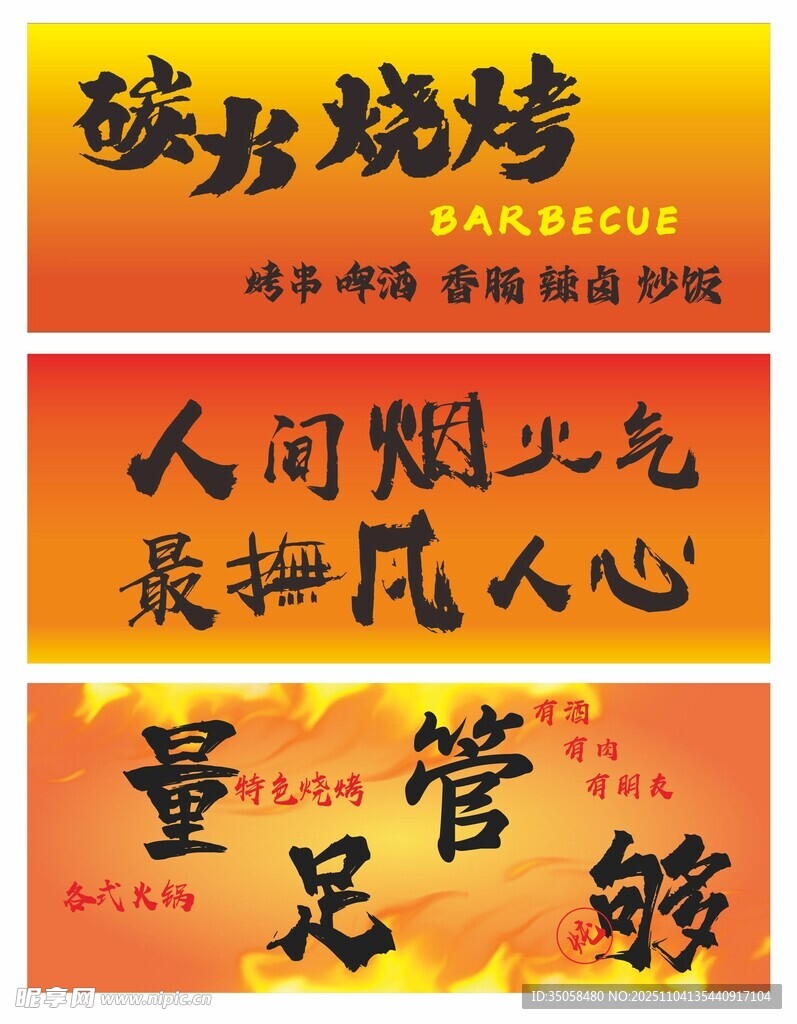 碳火烧烤
BARBECUE
烤串 啤酒 香肠 辣卤 炒饭
人间烟火气
最撫凡人心
量足管够
特色烧烤
各式火锅
有酒
有肉
有朋友
烧
昵享网 www.nipic.cn
ID:35058480 NO:20251104135440917104